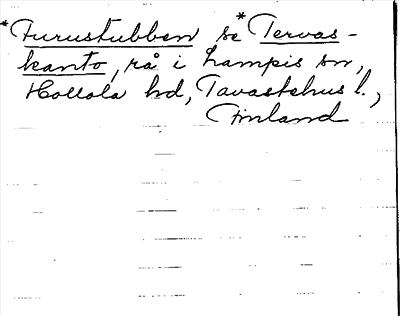 *Furustubben se *Tervas-
kanto, rå i Lampis sn,
Hollola hd, Tavastehus l.,
Finland